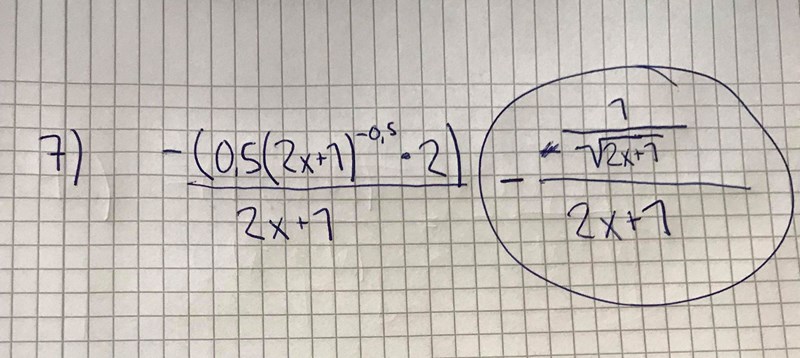 7) -(0,5(2x+1)^-0,5 · 2) / 2x+1 - (1 / √2x+1) / 2x+1